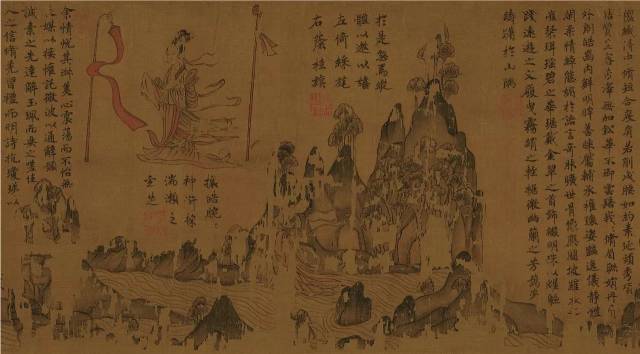 穠纖得中脩短合度肩若削成腰如約素延頸秀項
皓質呈露芳澤無加鉛華不御雲髻峩峩脩眉聯娟丹脣
外朗皓齒內鮮明眸善睞靨輔承權瓌姿豔逸儀靜體
閑柔情綽態媚於語言奇服曠世骨像應圖披羅衣之
璀粲珥瑤碧之華琚戴金翠之首飾綴明珠以耀軀
踐遠遊之文履曳霧綃之輕裾微幽蘭之芳藹步
踟躕於山隅
於是忽焉縱
體以遨以嬉
左倚綵旄
右蔭桂旗
攘皓腕於
神滸採
湍瀨之
玄芝
余情悅其淑美心震蕩而不怡無
良媒以接懽託微波以通辭願
誠素之先達解玉珮而要之嗟佳
人之信脩羌習禮而明詩抗瓊珶以